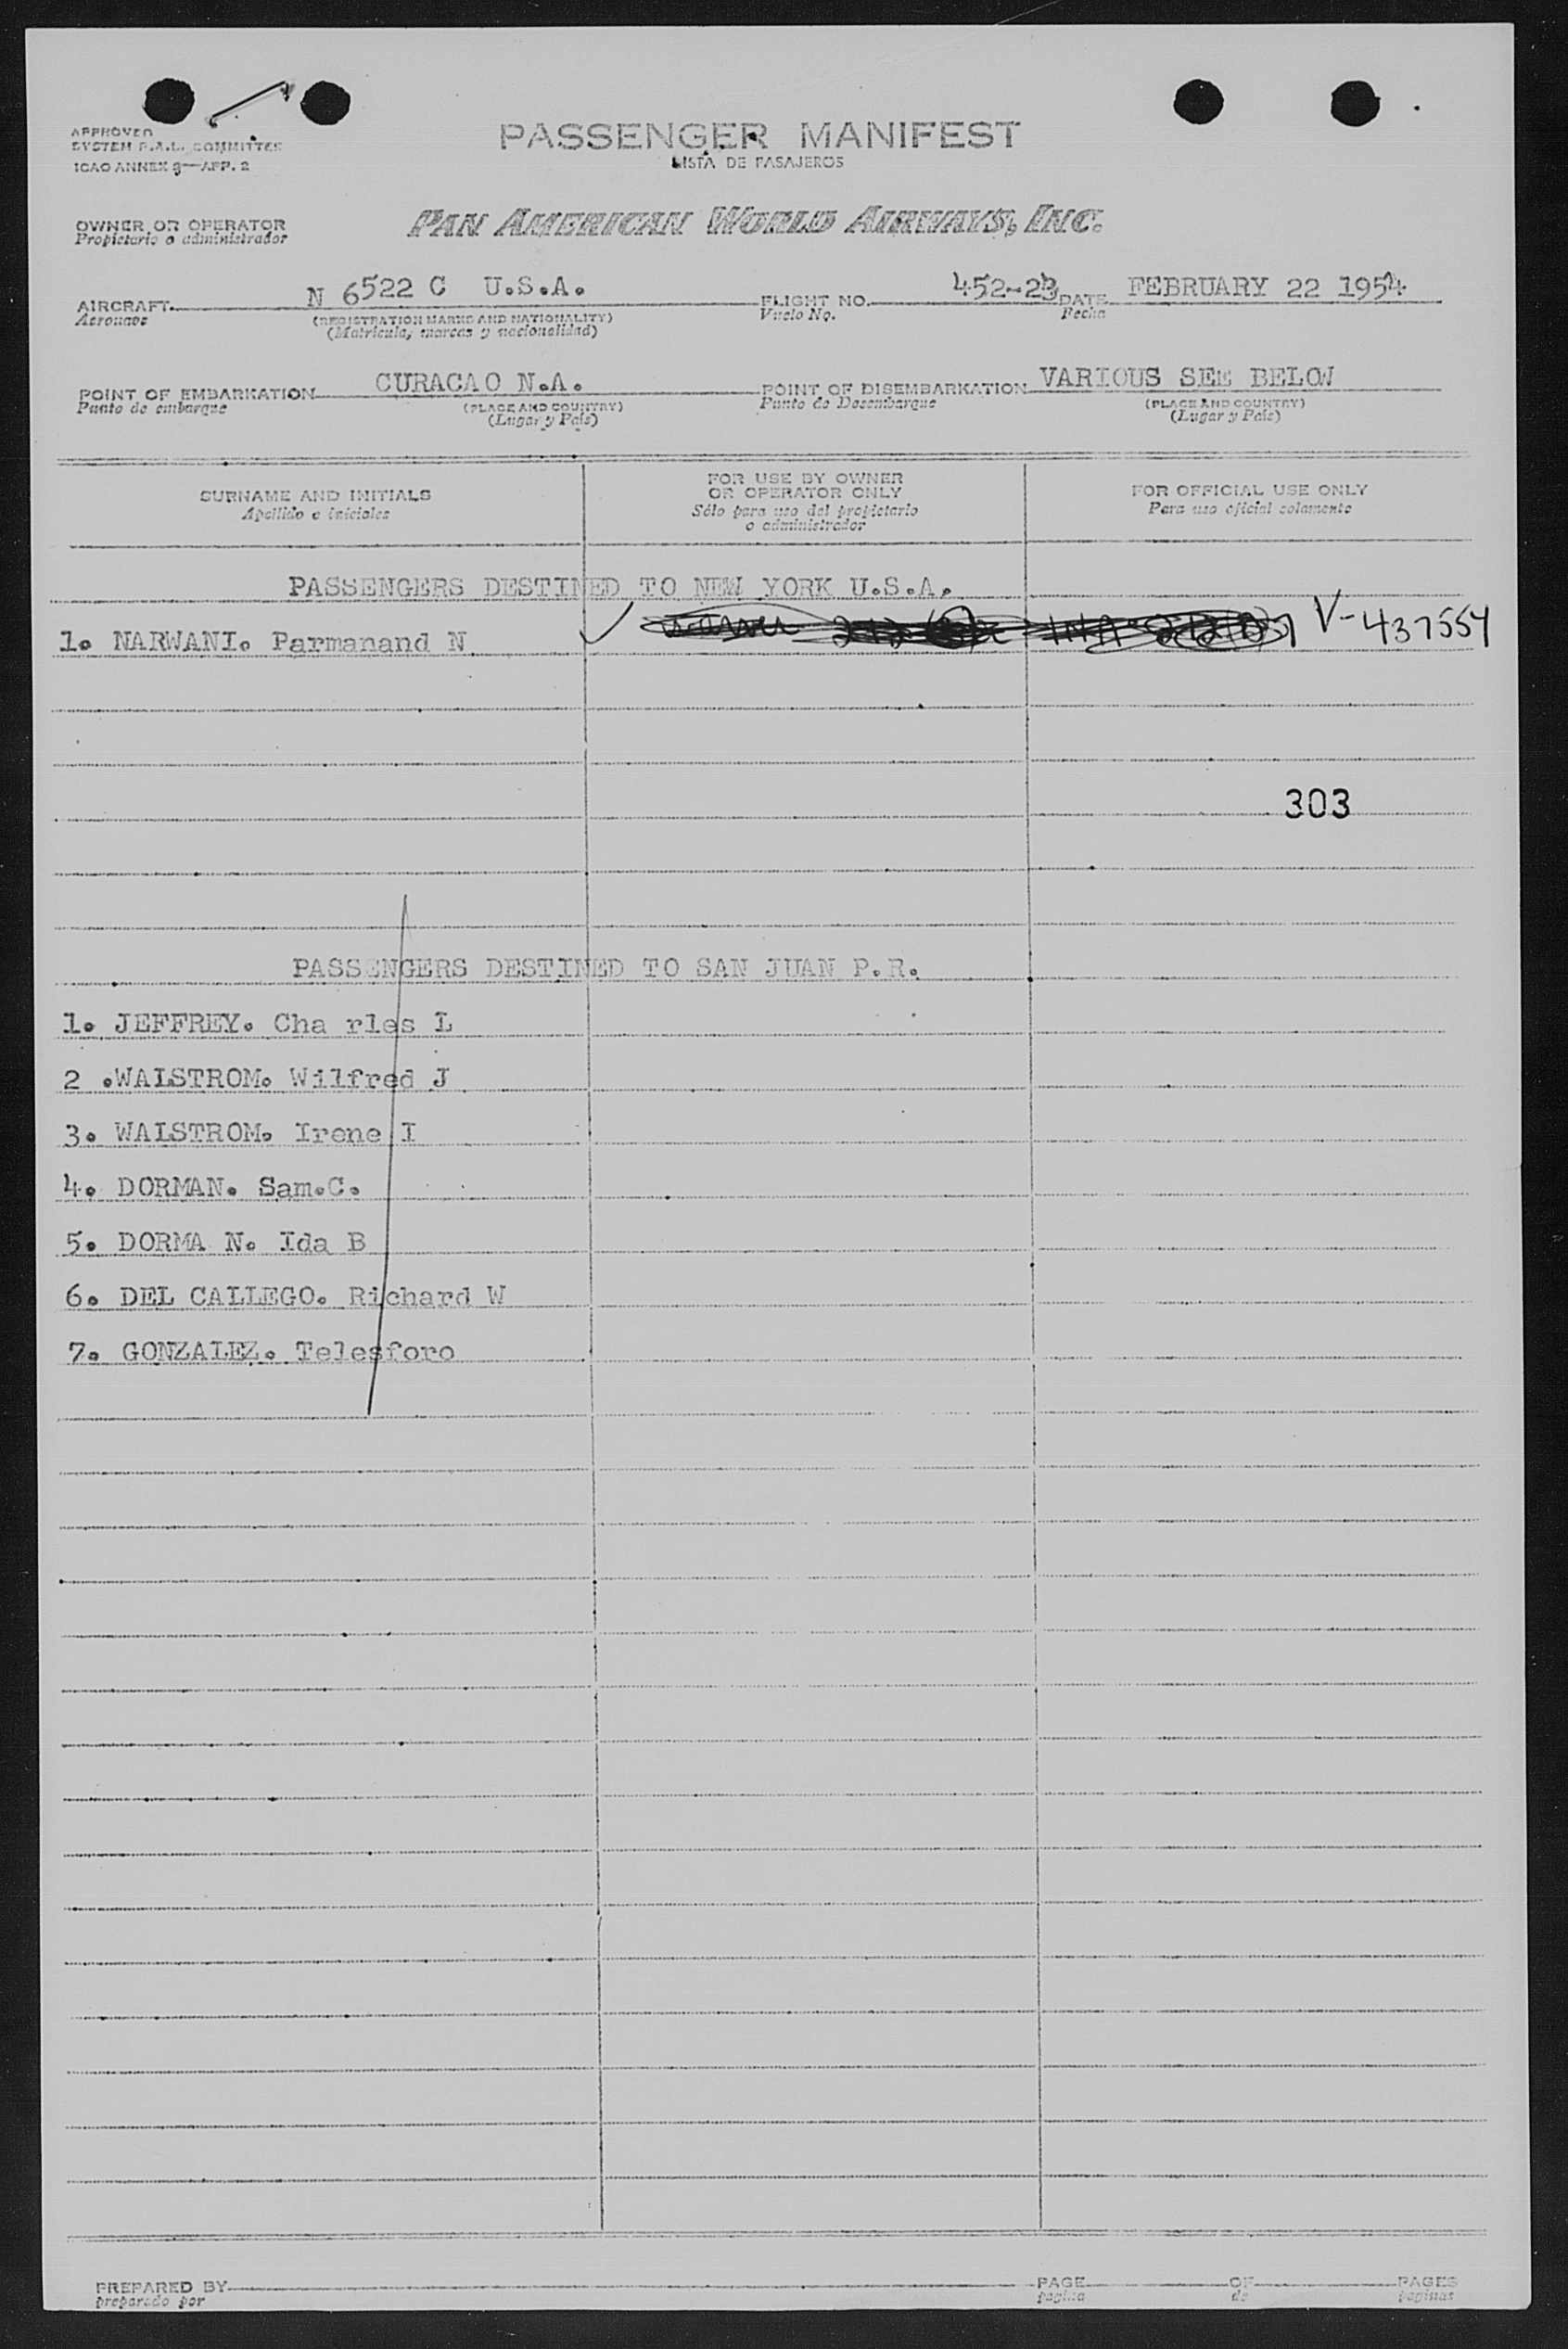 APPROVED
SYSTEM F.A.L. COMMITTEE
ICAO ANNEX 9—APP. 2
PASSENGER MANIFEST
LISTA DE PASAJEROS
OWNER OR OPERATOR
Propietario o administrador
PAN AMERICAN WORLD AIRWAYS, INC.
AIRCRAFT N 6522 C U.S.A. FLIGHT NO. 452-23 DATE FEBRUARY 22 1954
Aeronave (REGISTRATION MARKS AND NATIONALITY) Vuelo No. Fecha
(Matrícula, marcas y nacionalidad)
POINT OF EMBARKATION CURACAO N.A. POINT OF DISEMBARKATION VARIOUS SEE BELOW
Punto de embarque (PLACE AND COUNTRY) Punto de Desembarque (PLACE AND COUNTRY)
(Lugar y País) (Lugar y País)
SURNAME AND INITIALS
Apellido e iniciales
FOR USE BY OWNER
OR OPERATOR ONLY
Sólo para uso del propietario
o administrador
FOR OFFICIAL USE ONLY
Para uso oficial solamente
PASSENGERS DESTINED TO NEW YORK U.S.A.
1. NARWANI. Parmanand N V-437554
303
PASSENGERS DESTINED TO SAN JUAN P.R.
1. JEFFREY. Cha rles L
2 .WALSTROM. Wilfred J
3. WALSTROM. Irene I
4. DORMAN. Sam.C.
5. DORMA N. Ida B
6. DEL CALLEGO. Richard W
7. GONZALEZ. Telesforo
PREPARED BY PAGE OF PAGES
preparado por pagina de paginas